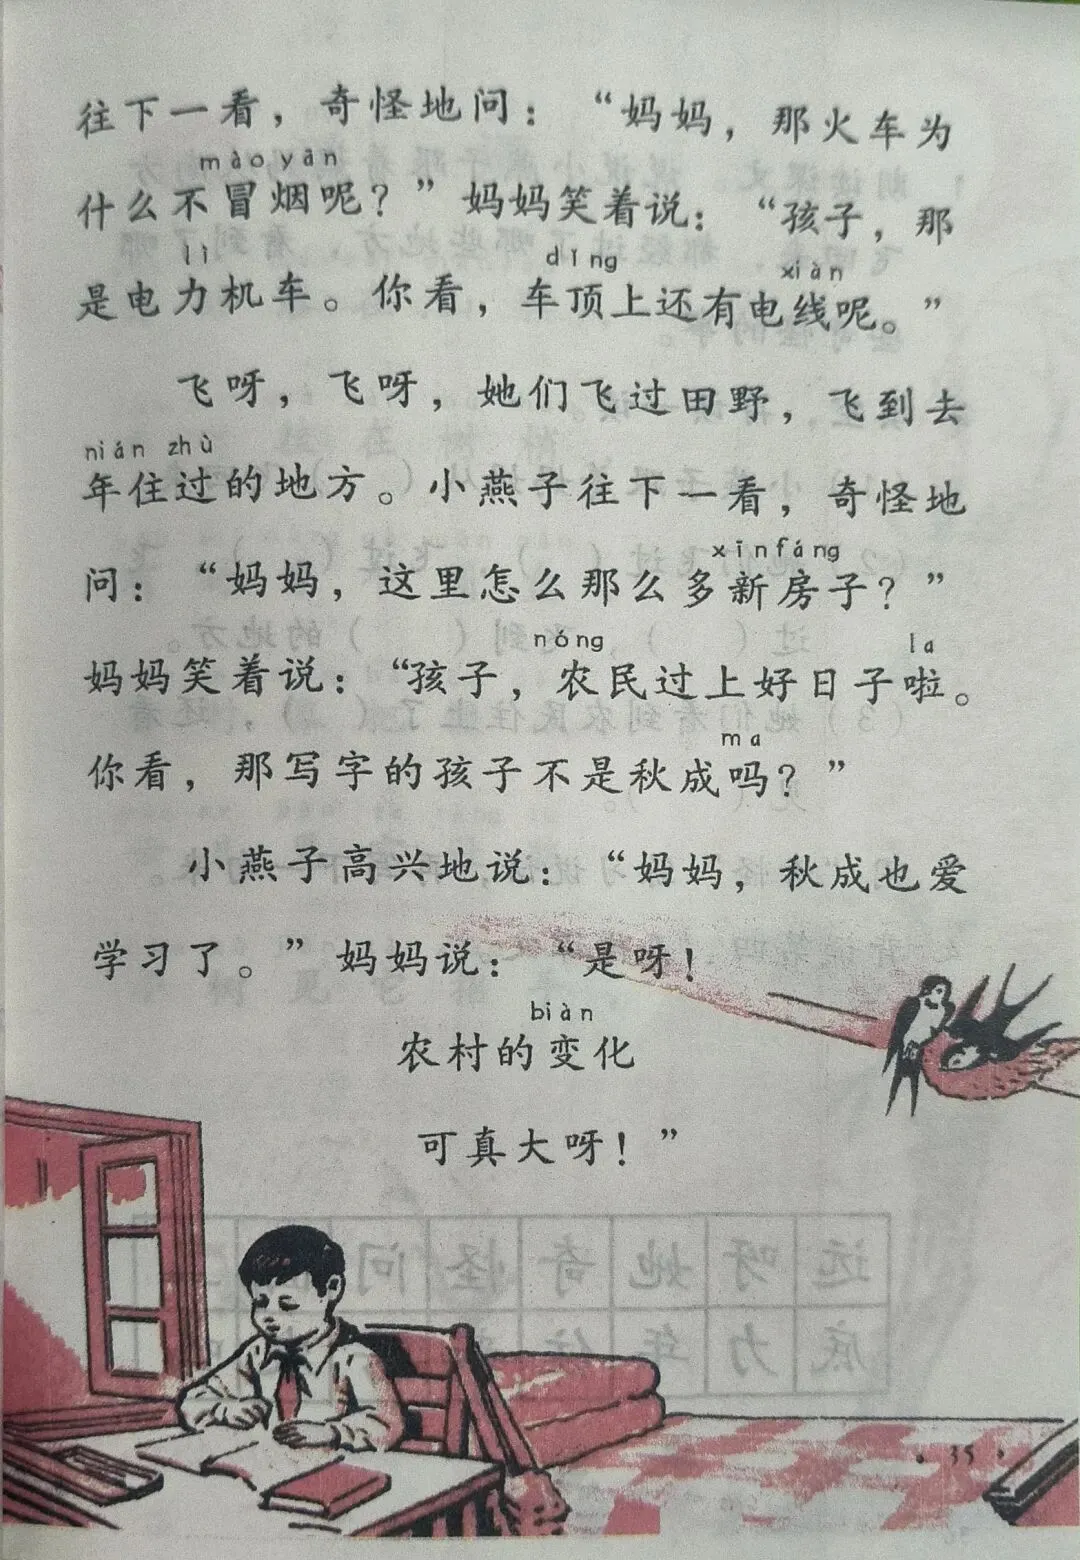 往下一看，奇怪地问：“妈妈，那火车为
mào yān
什么不冒烟呢？”妈妈笑着说：“孩子，那
lì dǐng xiàn
是电力机车。你看，车顶上还有电线呢。”
飞呀，飞呀，她们飞过田野，飞到去
nián zhù
年住过的地方。小燕子往下一看，奇怪地
xīn fáng
问：“妈妈，这里怎么那么多新房子？”
nóng la
妈妈笑着说：“孩子，农民过上好日子啦。
ma
你看，那写字的孩子不是秋成吗？”
小燕子高兴地说：“妈妈，秋成也爱
学习了。”妈妈说：“是呀！
biàn
农村的变化
可真大呀！”
· 35 ·